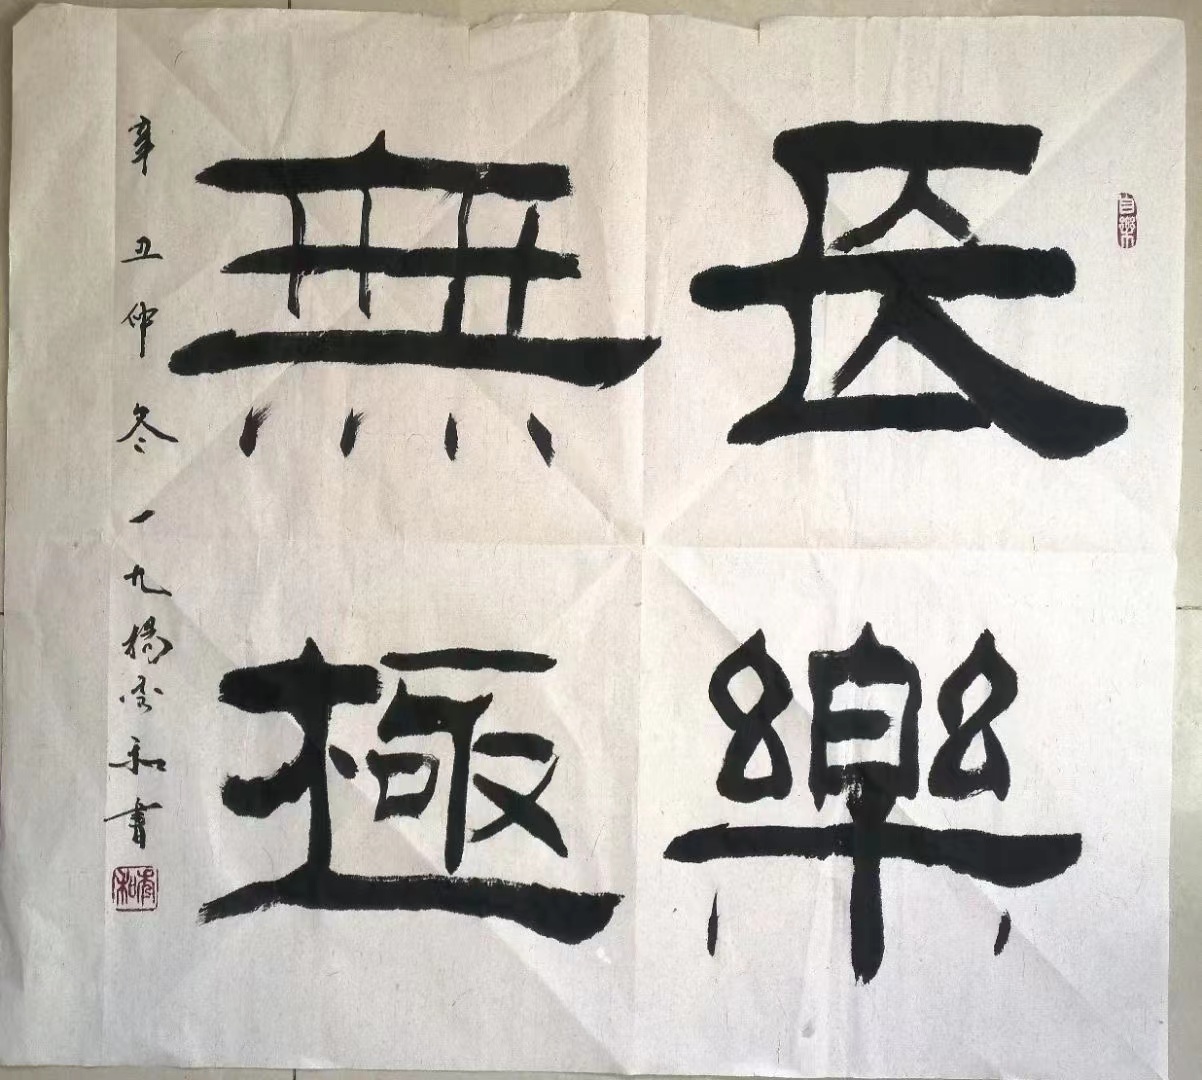 自樂
長樂
無極
辛丑仲冬一九楊和書